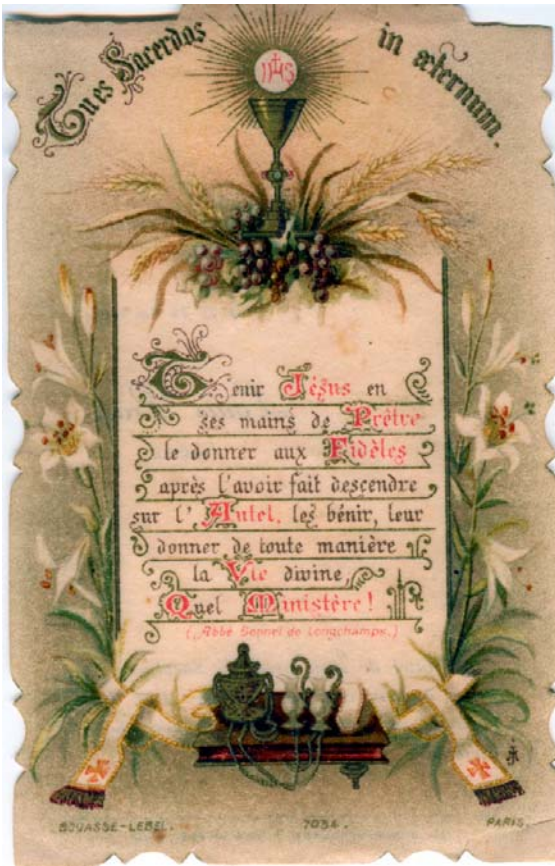 Tu es Sacerdos in æternum.
IHS
Tenir Jésus en
ses mains de Prêtre
le donner aux Fidèles
après l'avoir fait descendre
sur l'Autel, les bénir, leur
donner de toute manière
la Vie divine,
Quel Ministère!
(Abbé Sonnel de Longchamps.)
BOUASSE-LEBEL. 7034. PARIS.